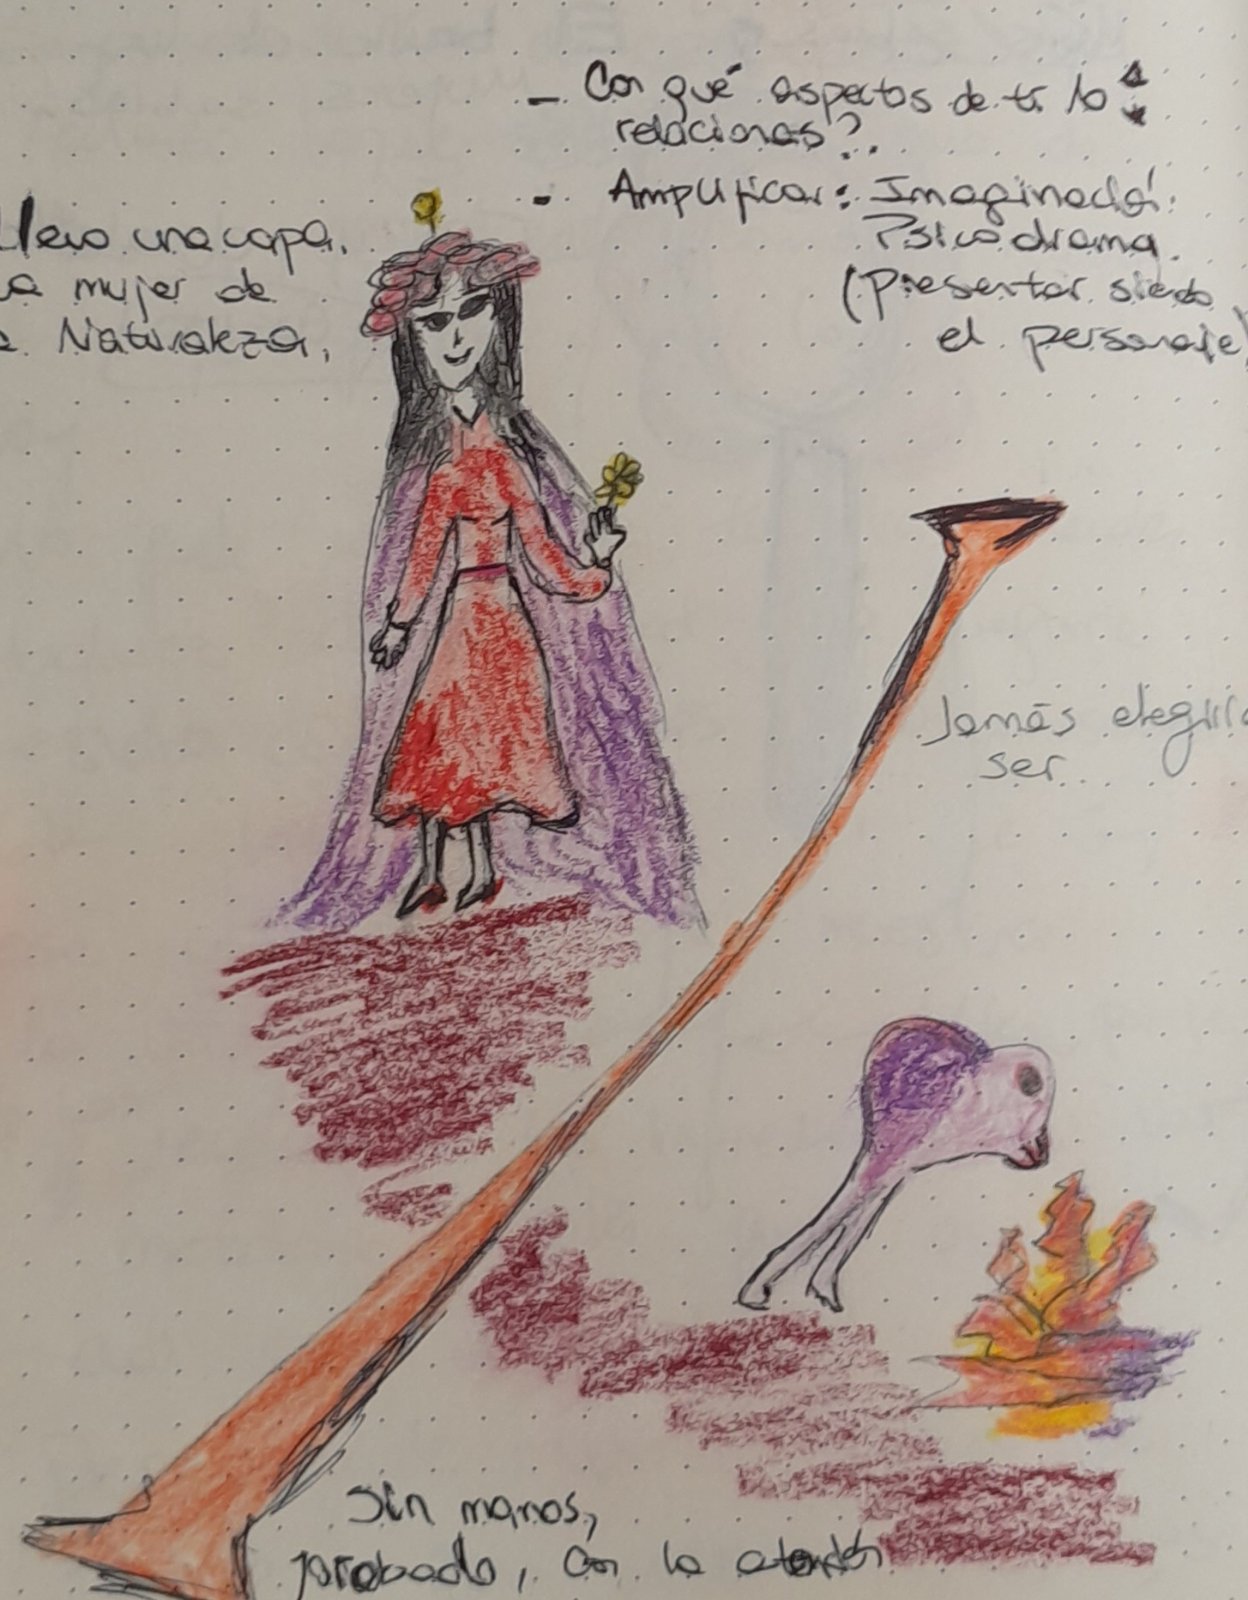 - Con qué aspectos de ti lo
relacionas?
- Amplificar: Imaginació.
Psicodrama.
(Presentar siedo
el personaje)
Llevo una capa.
a mujer de
Naturaleza,
Jamás elegirí
ser
Sin manos,
, con la atención